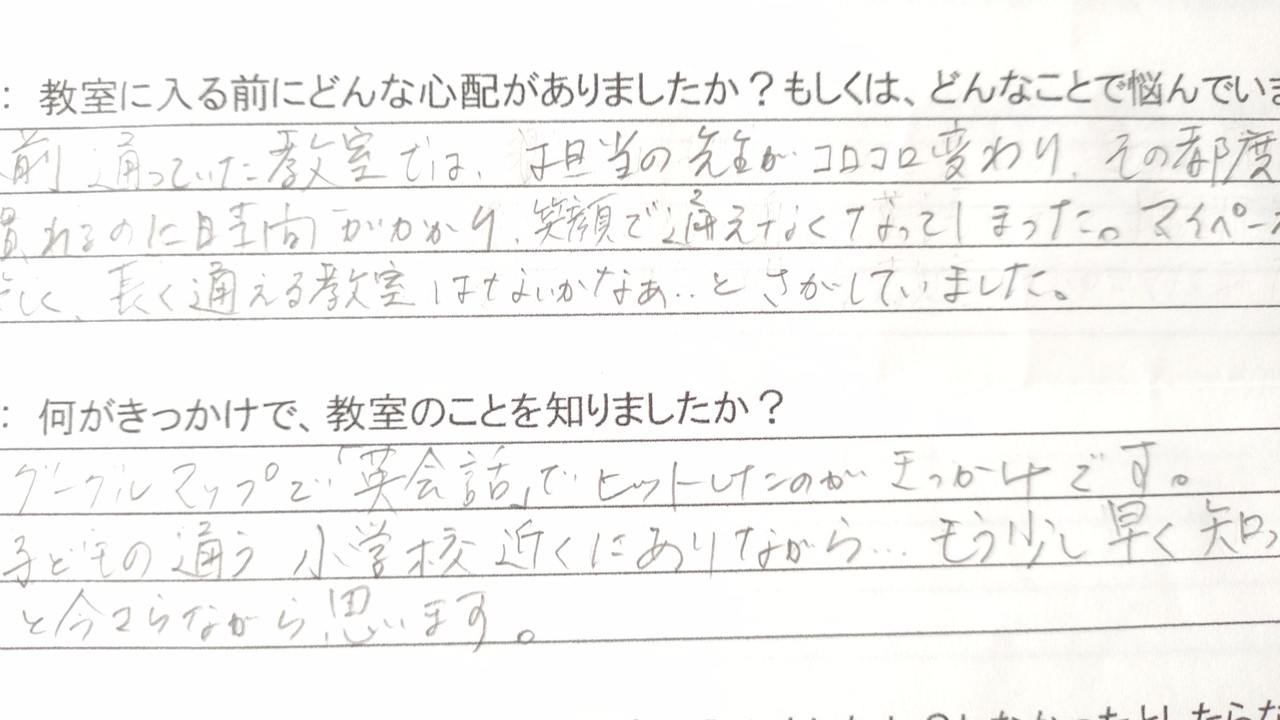 ：教室に入る前にどんな心配がありましたか？もしくは、どんなことで悩んでいま
前 通っていた教室では、担当の先生が コロコロ変わり、その都度
慣れるのに時間がかかり、笑顔で通えなくなってしまった。マイペー
長く通える教室はないかなぁ‥と さがしていました。
：何がきっかけで、教室のことを知りましたか？
グーグルマップで「英会話」でヒットしたのが きっかけです。
子どもの通う 小学校 近くにありながら… もう少し 早く 知っ
と今さらながら思います。